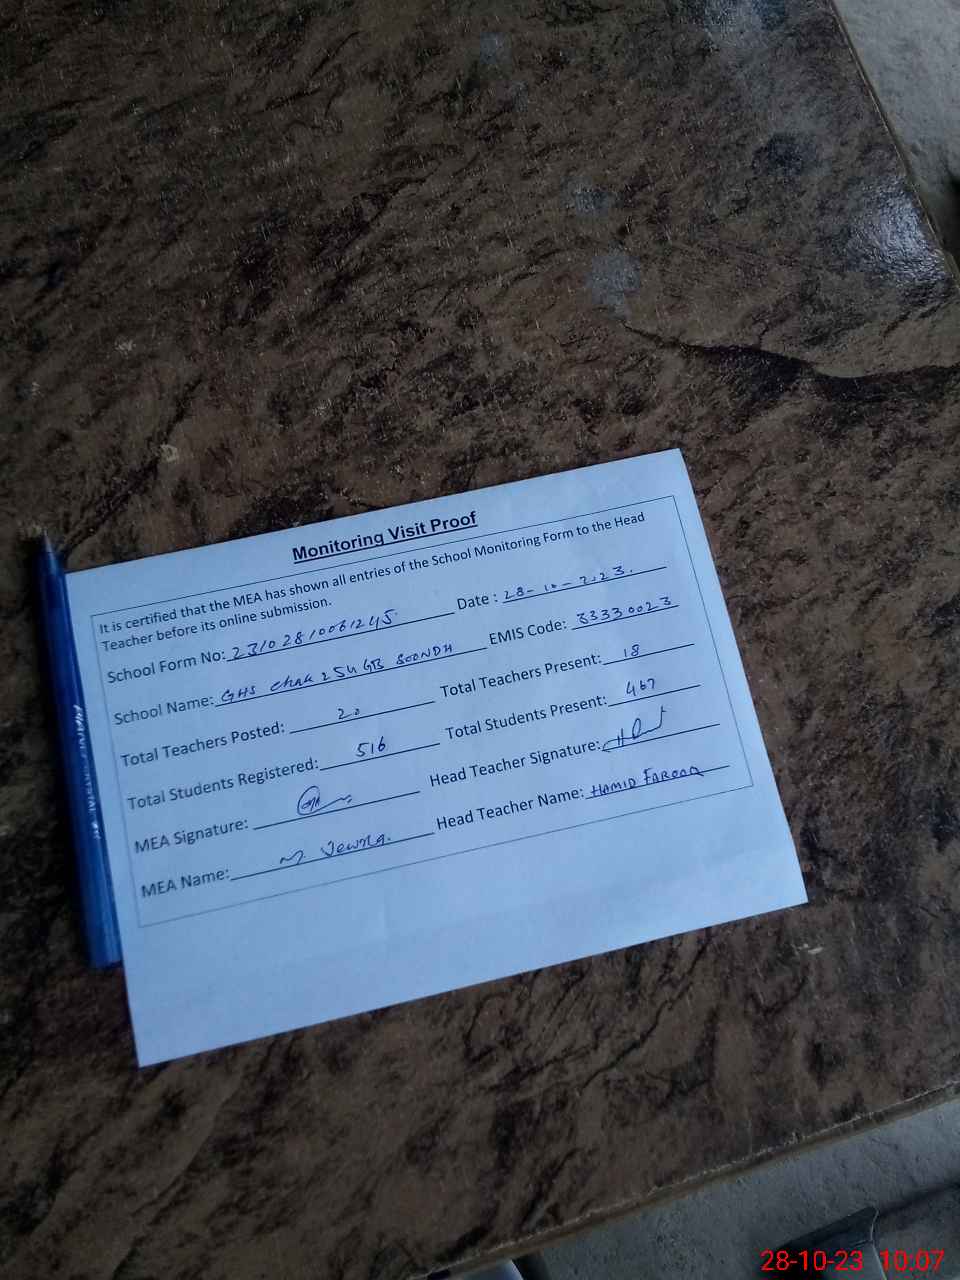 Monitoring Visit Proof
It is certified that the MEA has shown all entries of the School Monitoring Form to the Head
Teacher before its online submission.
School Form No: 23102810061245 Date : 28-10-2023.
School Name: GHS Chak 254 GB SOONDH EMIS Code: 33330023
Total Teachers Posted: 20 Total Teachers Present: 18
Total Students Registered: 516 Total Students Present: 467
MEA Signature: Head Teacher Signature:
MEA Name: M. Head Teacher Name: HAMID FAROOQ
28-10-23 10:07